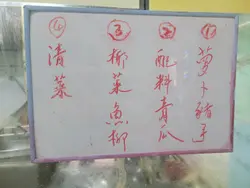 ① 萝卜豬手
② 配料青瓜
③ 椰菜魚柳
④ 清菜